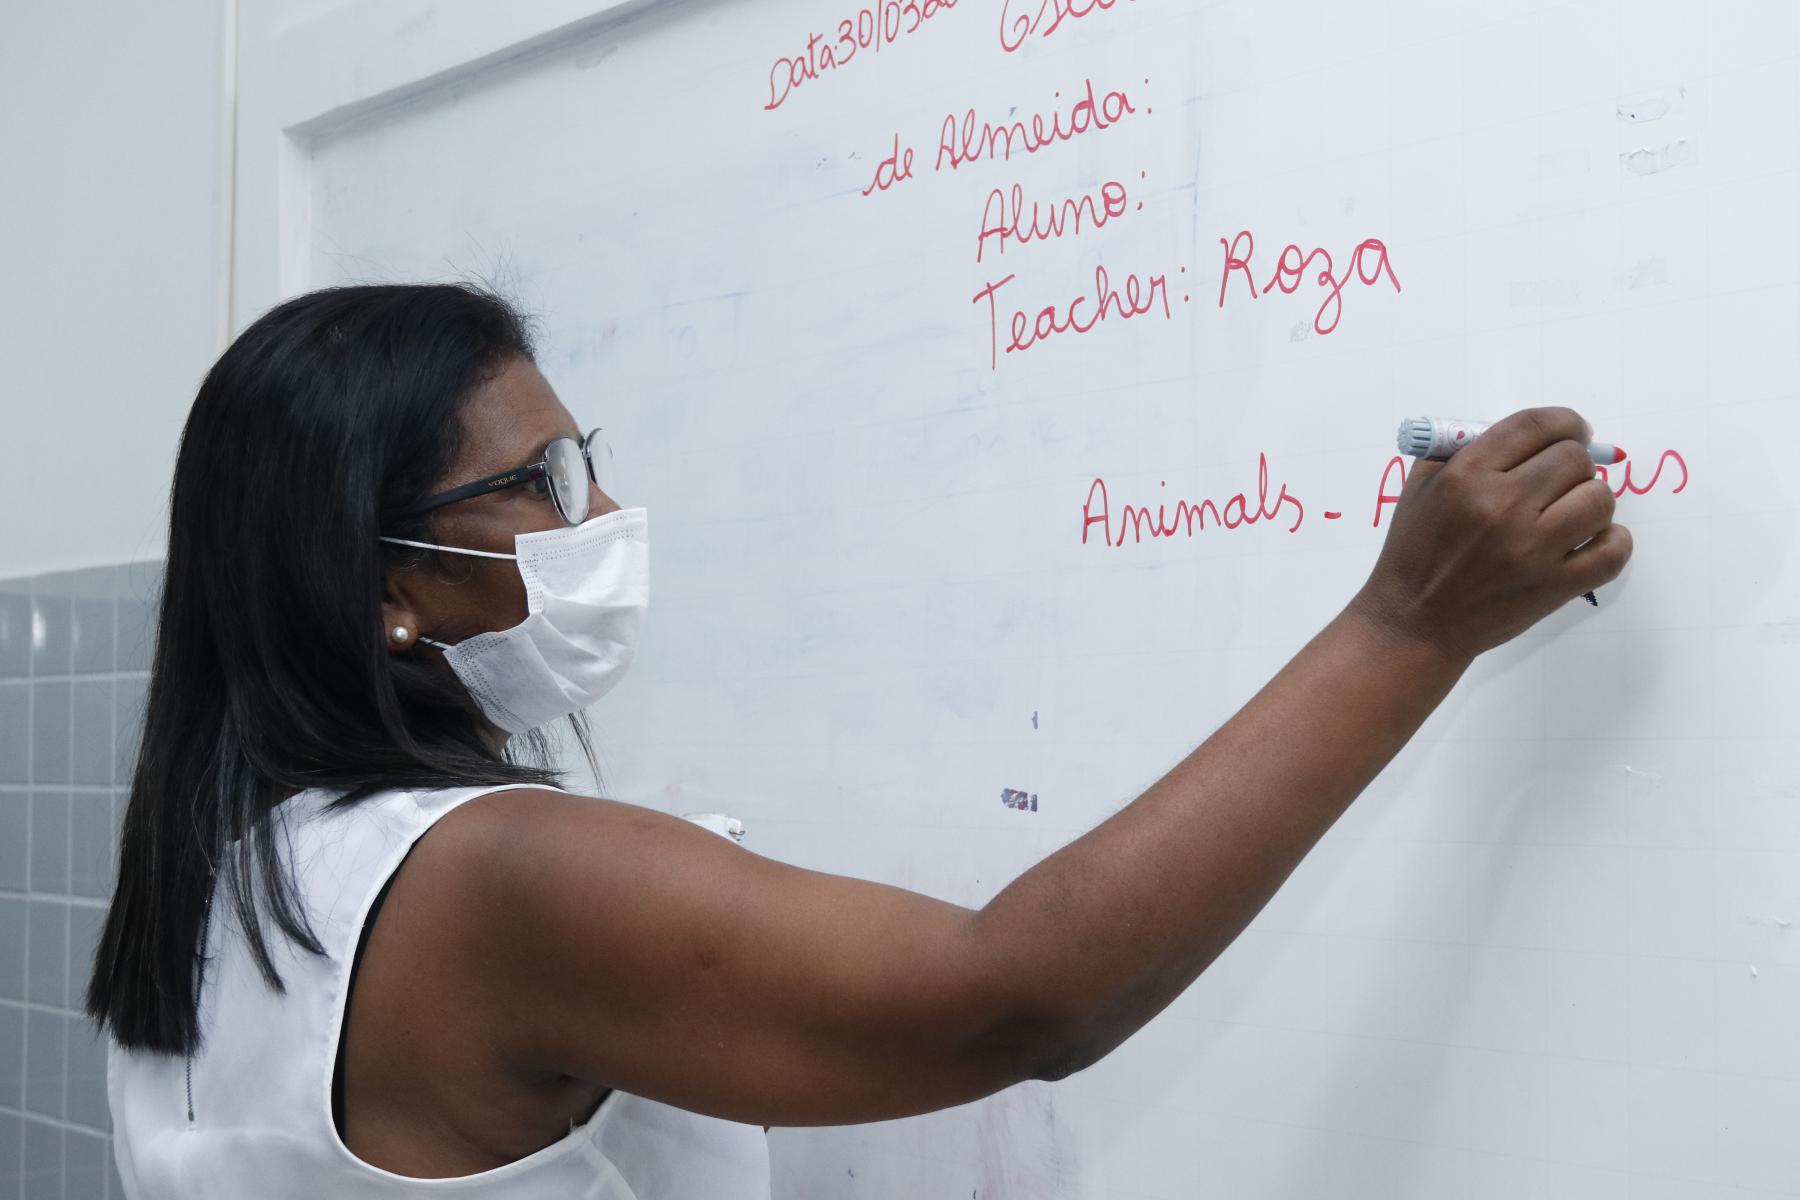 Data:30/03
de Almeida:
Aluno:
Teacher: Roza
Animals -
VOGUE